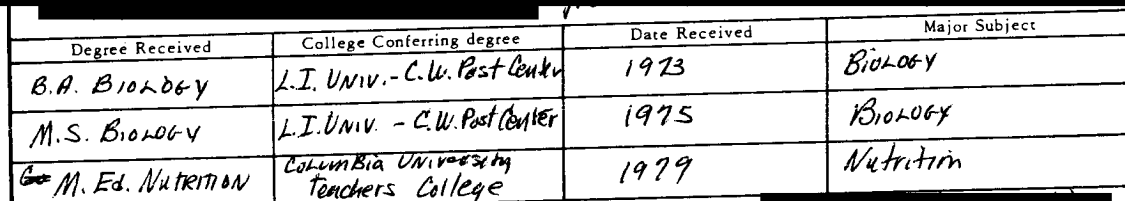 Degree Received College Conferring degree Date Received Major Subject
B.A. BIOLOGY L.I. UNIV. - C.W. Post Center 1973 BIOLOGY
M.S. BIOLOGY L.I. UNIV. - C.W. Post Center 1975 BIOLOGY
M. Ed. NUTRITION COLUMBIA UNIVERSITY 1979 Nutrition
Teachers College